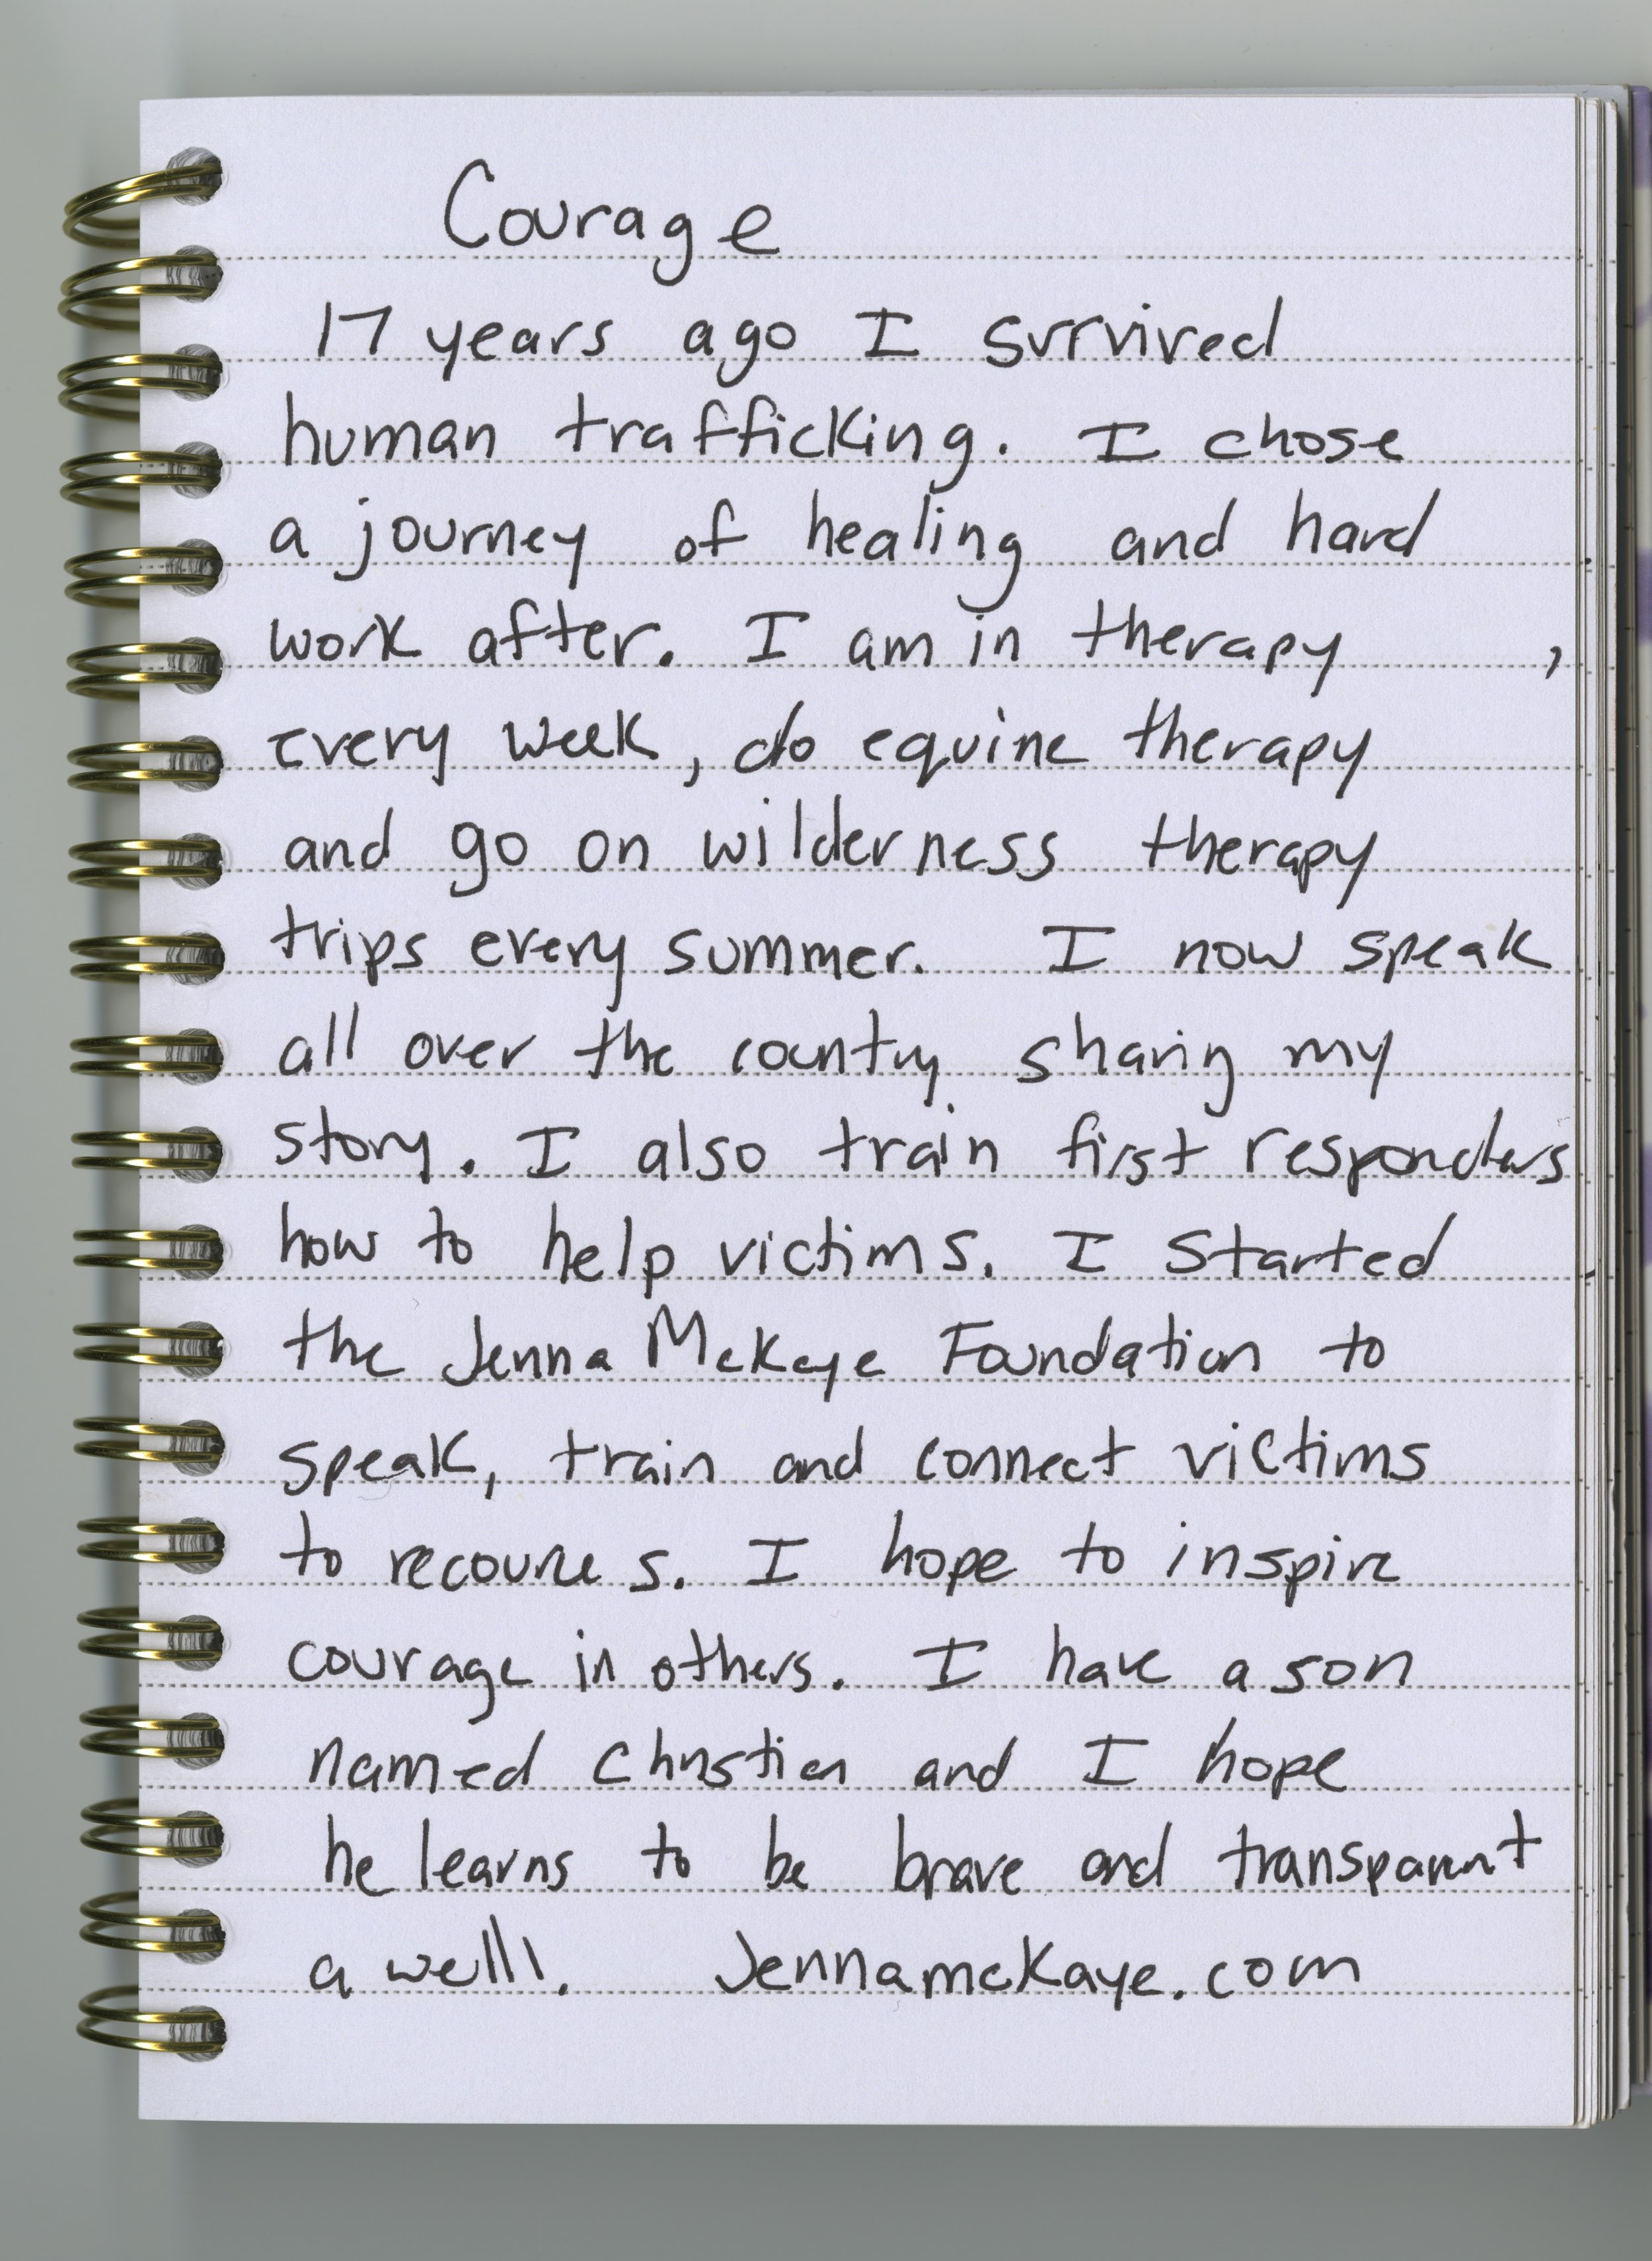 Courage
17 years ago I survived
human trafficking. I chose
a journey of healing and hard
work after. I am in therapy ,
every week, do equine therapy
and go on wilderness therapy
trips every summer. I now speak
all over the country sharing my
story. I also train first responders
how to help victims. I started
the Jenna McKaye Foundation to
speak, train and connect victims
to recources. I hope to inspire
courage in others. I have a son
named Christian and I hope
he learns to be brave and transparent
a well!. Jennamckaye.com